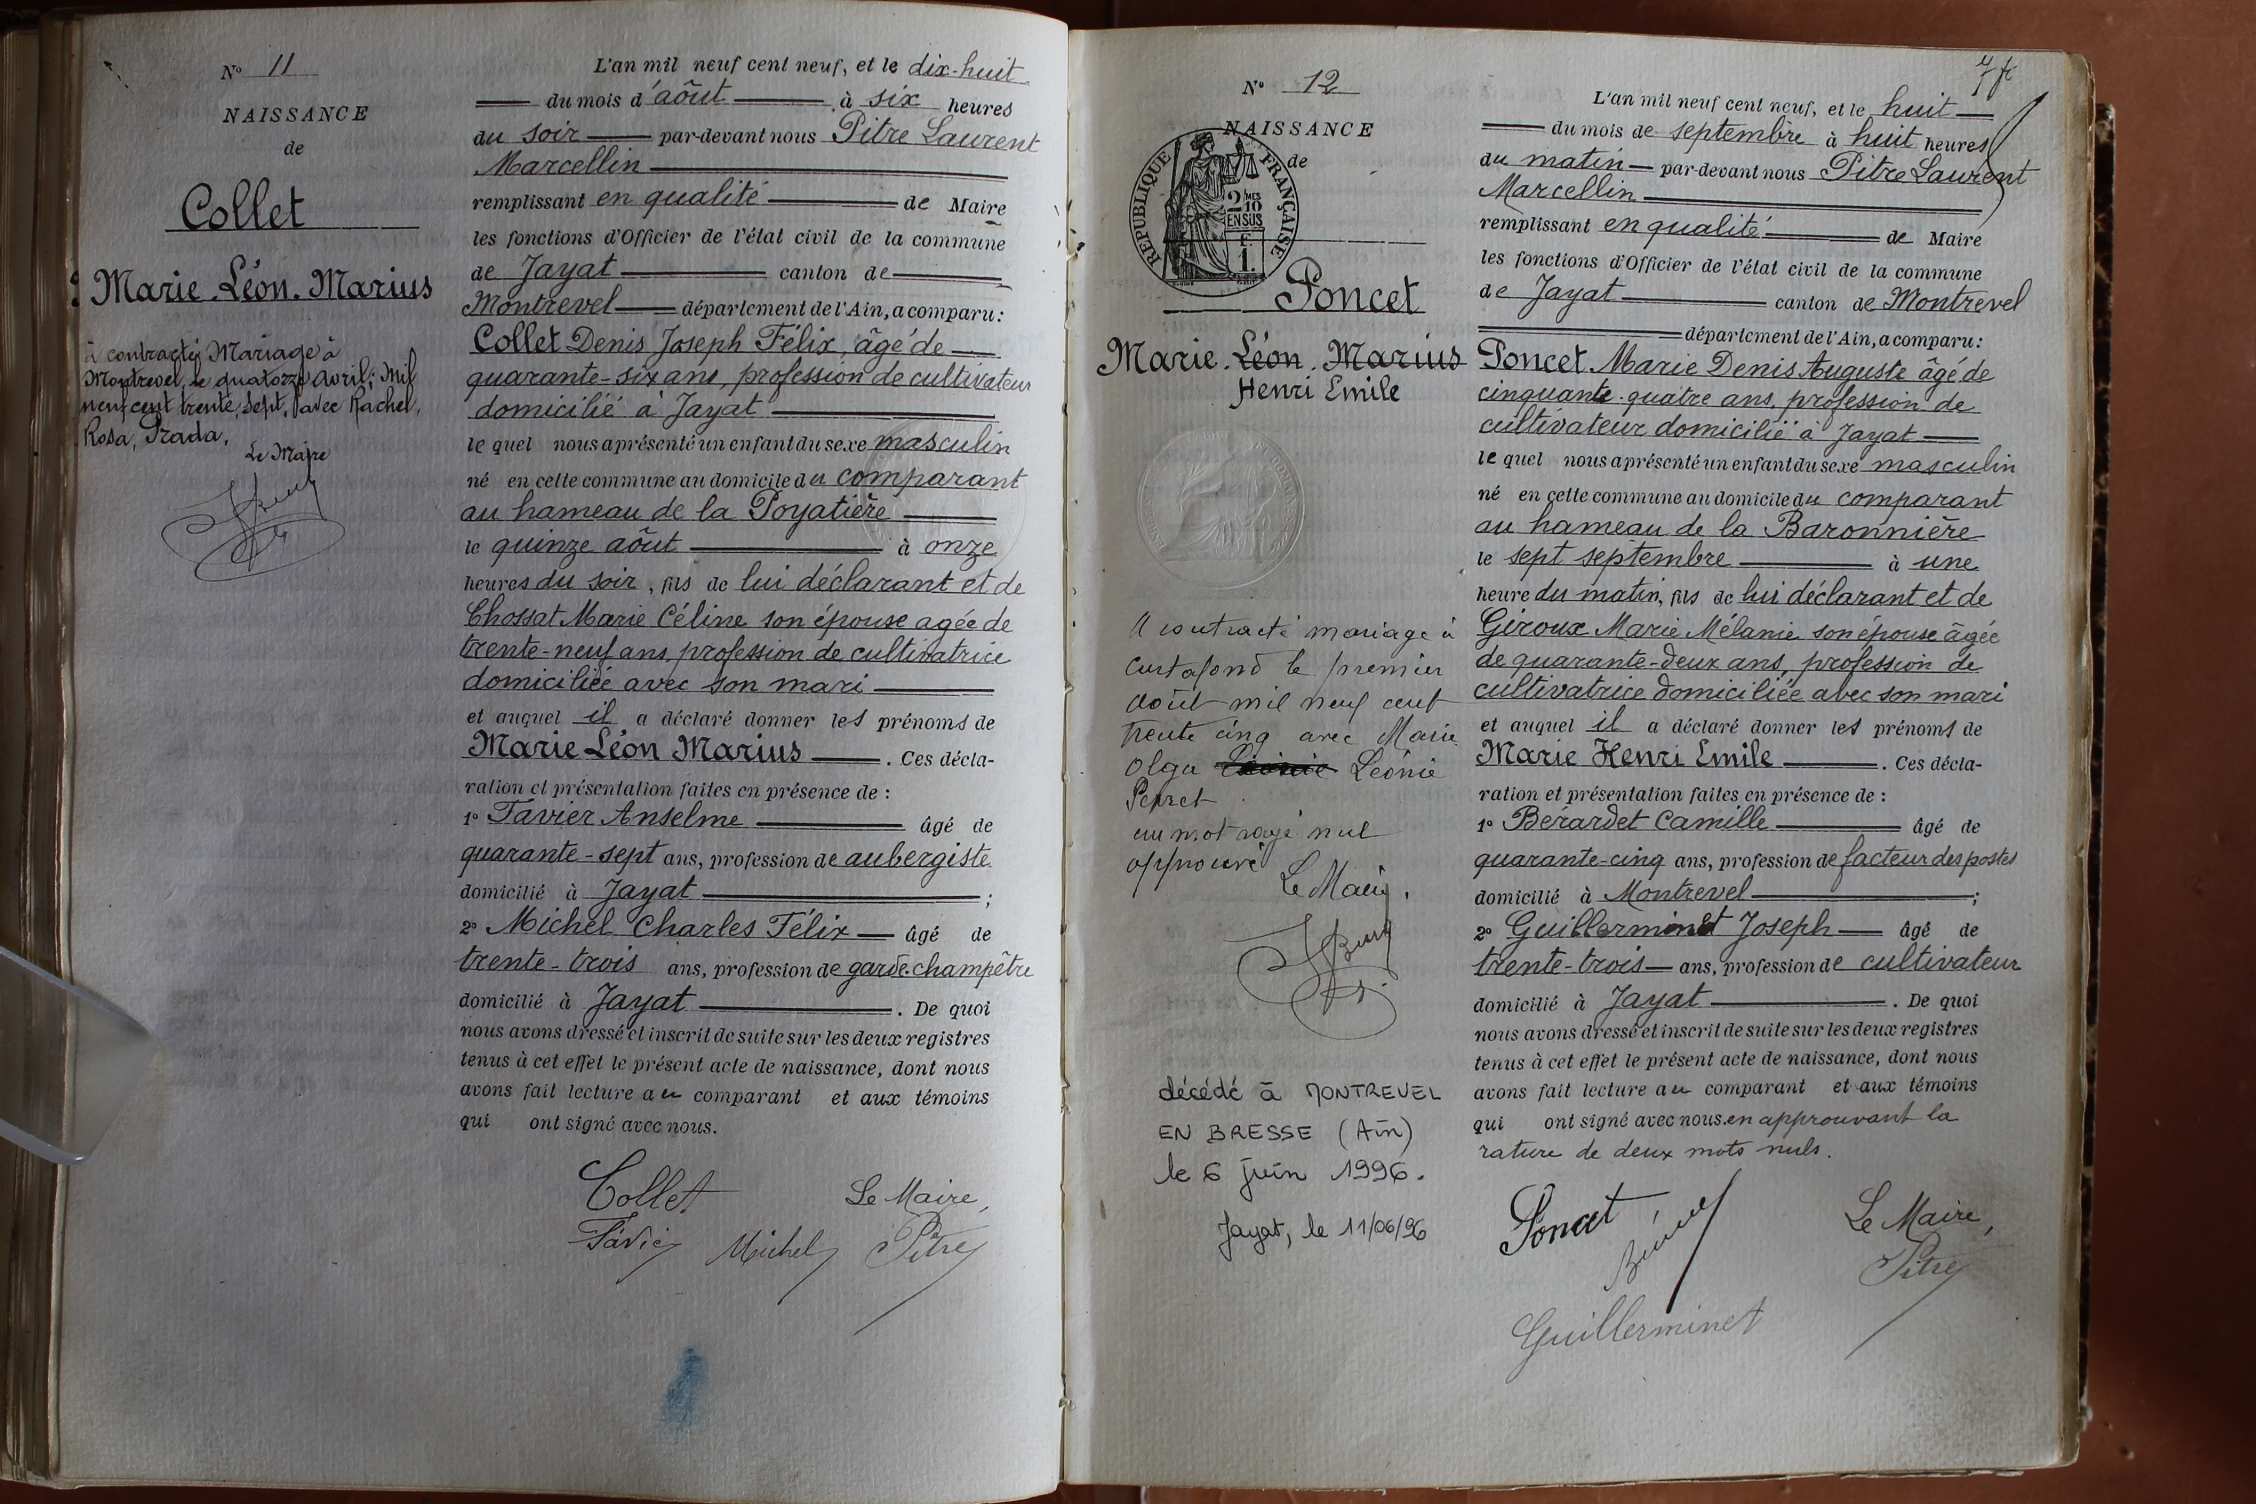 N° 11
NAISSANCE
de
Collet
Marie. Léon. Marius
à contracté Mariage à
Montrevel, le quatorze avril, Mil
neuf cent trente, sept, avec Rachel,
Rosa, Prada,
Le Maire
L'an mil neuf cent neuf, et le dix-huit
du mois d'aôut à six heures
du soir par-devant nous Pitre Laurent
Marcellin
remplissant en qualité de Maire
les fonctions d'Officier de l'état civil de la commune
de Jayat canton de
Montrevel département de l'Ain, a comparu:
Collet Denis Joseph Félix, âgé de
quarante-six ans, profession de cultivateur
domicilié à Jayat
lequel nous a présenté un enfant du sexe masculin
né en cette commune au domicile du comparant
au hameau de la Poyatière
le quinze aôut à onze
heures du soir, fils de lui déclarant et de
Chossat Marie Céline son épouse agée de
trente-neuf ans, profession de cultivatrice
domiciliée avec son mari
et auquel il a déclaré donner les prénoms de
Marie Léon Marius. Ces décla-
ration et présentation faites en présence de :
1° Favier Anselme âgé de
quarante-sept ans, profession de aubergiste
domicilié à Jayat ;
2° Michel Charles Félix âgé de
trente-trois ans, profession de garde-champêtre
domicilié à Jayat. De quoi
nous avons dressé et inscrit de suite sur les deux registres
tenus à cet effet le présent acte de naissance, dont nous
avons fait lecture au comparant et aux témoins
qui ont signé avec nous.
Collet Le Maire,
Favier Michel Pitre
7 f
N° 12
NAISSANCE
de
REPUBLIQUE FRANÇAISE
2/10 MES
EN SUS
F.
1.
Poncet
Marie. Léon. Marius
Henri Emile
A contracté mariage à
Curtafond le premier
août mil neuf cent
trente cinq avec Marie
Olga Léonie
Perret
un mot rayé nul
approuvé
Le Maire,
décédé à MONTREVEL
EN BRESSE (Ain)
le 6 juin 1996.
Jayat, le 11/06/96
L'an mil neuf cent neuf, et le huit
du mois de septembre à huit heures
du matin par-devant nous Pitre Laurent
Marcellin
remplissant en qualité de Maire
les fonctions d'Officier de l'état civil de la commune
de Jayat canton de Montrevel
département de l'Ain, a comparu:
Poncet Marie Denis Auguste âgé de
cinquante-quatre ans, profession de
cultivateur domicilié à Jayat
lequel nous a présenté un enfant du sexe masculin
né en cette commune au domicile du comparant
au hameau de la Baronnière
le sept septembre à une
heure du matin, fils de lui déclarant et de
Giroux Marie Mélanie son épouse âgée
de quarante-deux ans, profession de
cultivatrice domiciliée avec son mari
et auquel il a déclaré donner les prénoms de
Marie Henri Emile. Ces décla-
ration et présentation faites en présence de :
1° Bérardet Camille âgé de
quarante-cinq ans, profession de facteur des postes
domicilié à Montrevel ;
2° Guillerminet Joseph âgé de
trente-trois ans, profession de cultivateur
domicilié à Jayat. De quoi
nous avons dressé et inscrit de suite sur les deux registres
tenus à cet effet le présent acte de naissance, dont nous
avons fait lecture au comparant et aux témoins
qui ont signé avec nous. en approuvant la
rature de deux mots nuls.
Poncet, Le Maire,
Pitre
Guillerminet